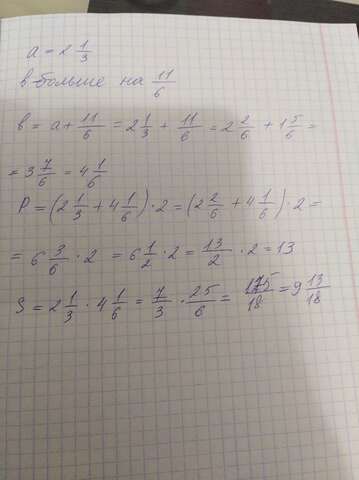 a = 2 1/3
в больше на 11/6
в = a + 11/6 = 2 1/3 + 11/6 = 2 2/6 + 1 5/6 =
= 3 7/6 = 4 1/6
P = (2 1/3 + 4 1/6) · 2 = (2 2/6 + 4 1/6) · 2 =
= 6 3/6 · 2 = 6 1/2 · 2 = 13/2 · 2 = 13
S = 2 1/3 · 4 1/6 = 7/3 · 25/6 = 175/18 = 9 13/18